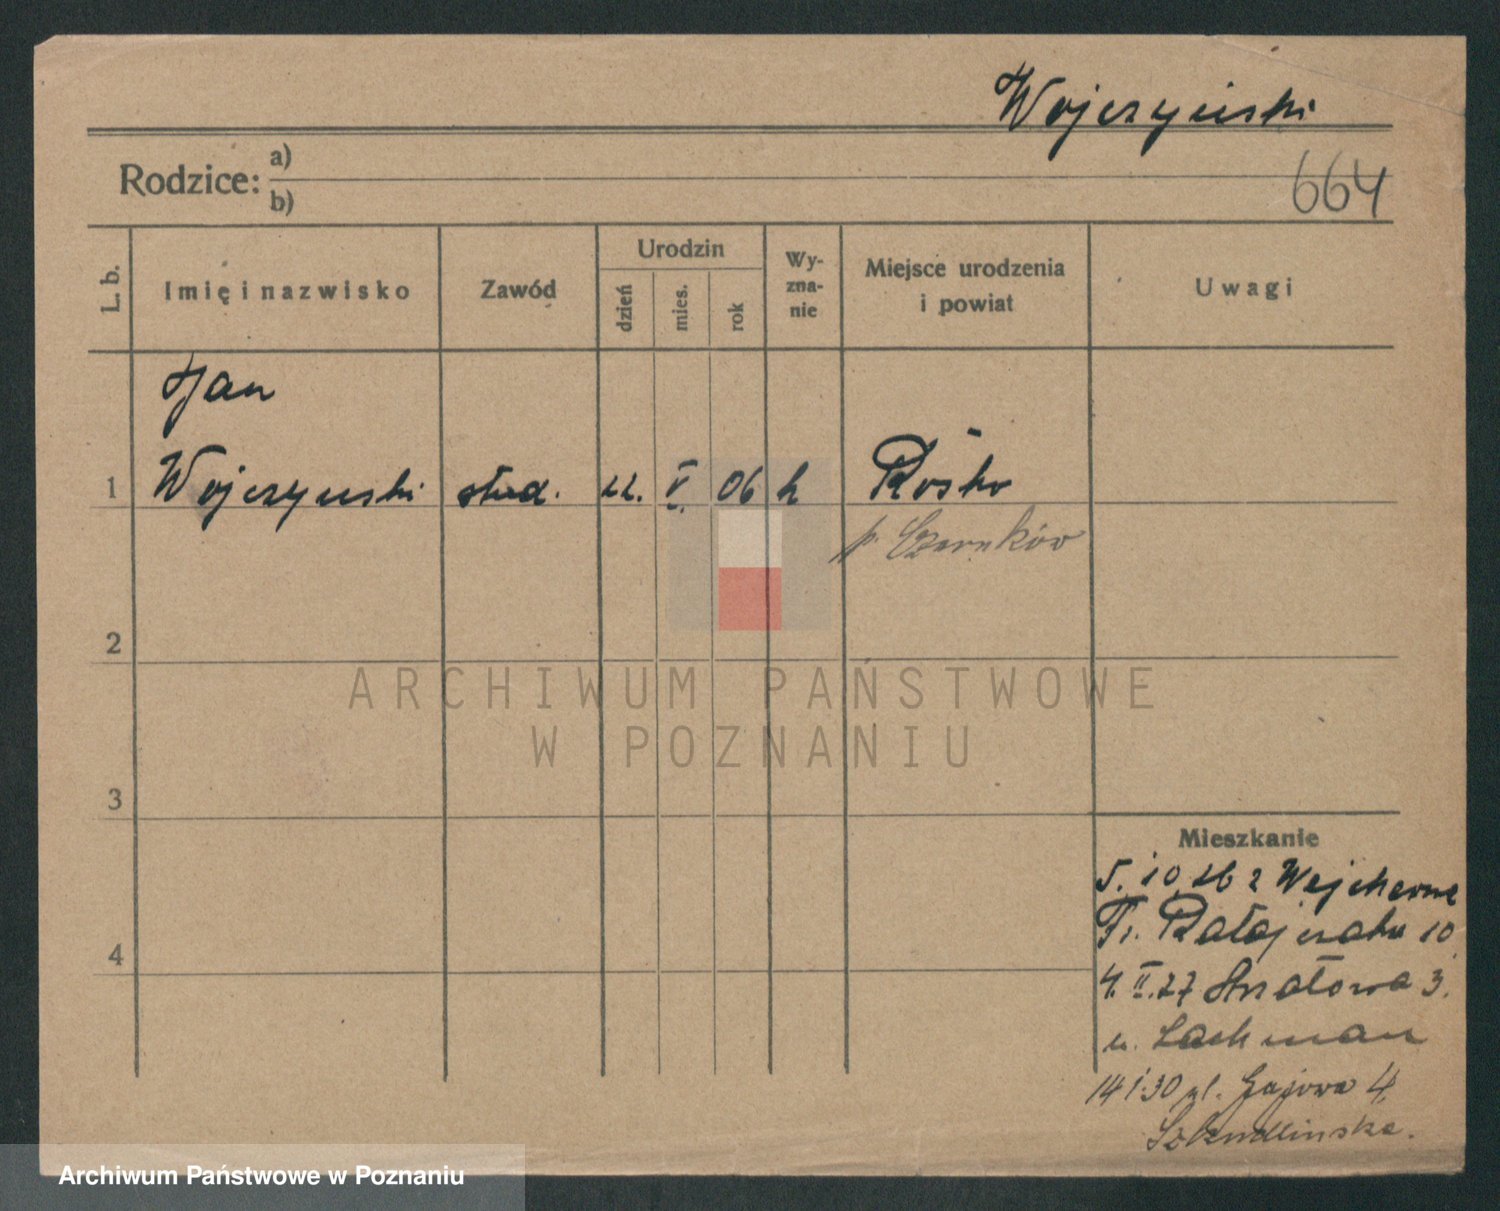 Wojczyński
Rodzice: a)
b)
664
L. b.
Imię i nazwisko
Zawód
Urodzin
dzień
mies.
rok
Wy-
zna-
nie
Miejsce urodzenia
i powiat
Uwagi
Jan
1 Wojczyński stud. 22. V. 06 k Rosko
p. Czarnków
2
ARCHIWUM PAŃSTWOWE
W POZNANIU
3
Mieszkanie
5. 10 26 z Wejcherowa
Fr. Ratajczaka 10
4
4. II. 27 Strzałowa 3.
u. Lachman
14 1.30 pl. Gajowa 4
Archiwum Państwowe w Poznaniu